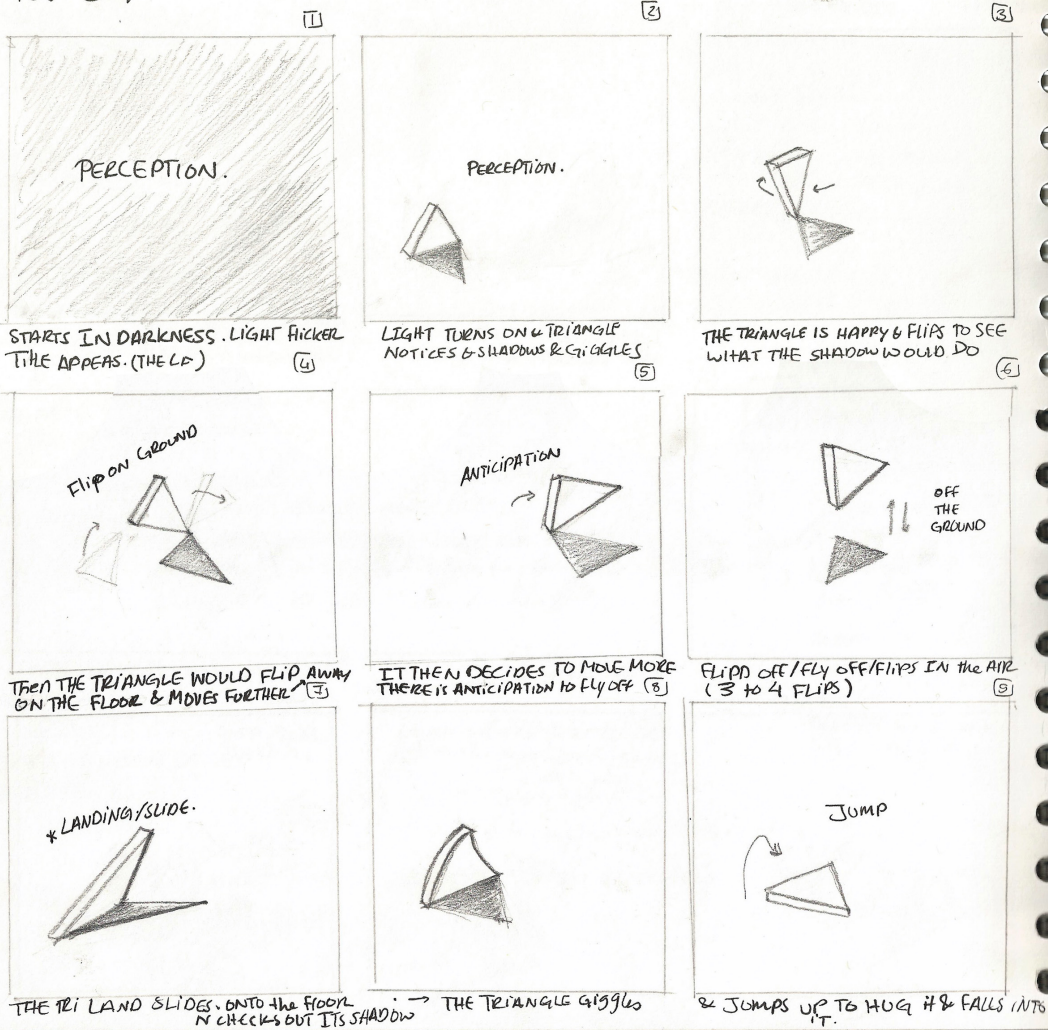 1
2
3
PERCEPTION.
PERCEPTION.
STARTS IN DARKNESS. LIGHT FlicKER
TITLE APPEAS. (THE
LIGHT TURNS ON & TRIANGLE
NOTICES & SHADOWS & GIGGLES
THE TRIANGLE IS HAPPY & FLIPS TO SEE
WHAT THE SHADOW WOULD DO
4
5
6
Flip ON GROUND
ANTICIPATION
OFF
THE
GROUND
Then THE TRIANGLE WOULD FLIP AWAY
ON THE FLOOR & MOVES FURTHER
IT THEN DECIDES TO MOVE MORE
THERE is ANTICIPATION to Fly Off
FLIPD Off/FLY OFF/FLIPS IN the AIR
(3 to 4 FLIPS)
7
8
9
* LANDING/SLIDE.
JUMP
THE TRI LAND SLIDES. ONTO the flOOR
N CHECKS OUT ITS SHADOW
→ THE TRIANGLE GIGGles
& JUMPS UP TO HUG it & FALLS INTO
IT.